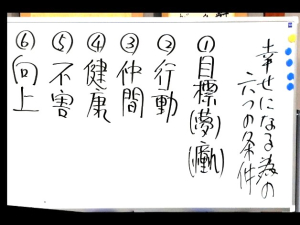 幸せになる為の
六つの条件
①目標(夢)(働)
②行動
③仲間
④健康
⑤不害
⑥向上